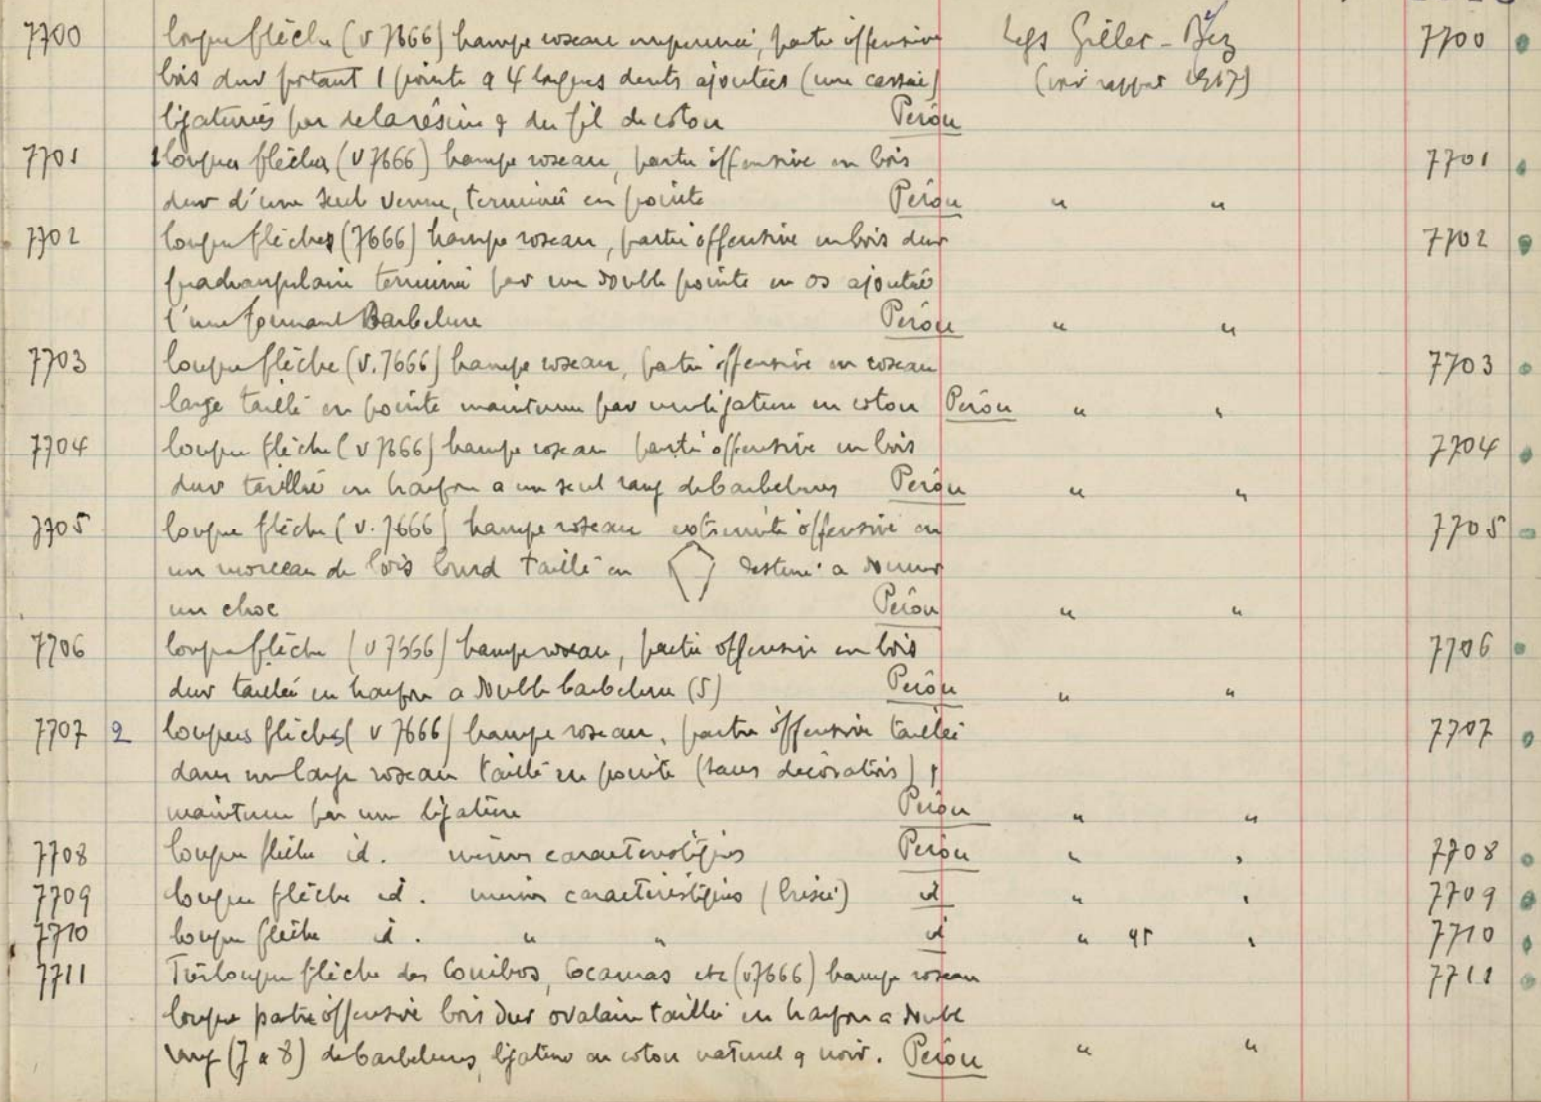 7700 longue flèche (v 7666) hampe roseau empennée, partie offensive Legs Giller-Bez 7700
bois dur portant 1 pointe a 4 longues dents ajoutées (une cassée) (voir rapport 1917)
ligaturées par de la résine & du fil de coton Pérou
7701 longues flèches (v 7666) hampe roseau, partie offensive en bois 7701
dur d'une seule venue, terminée en pointe Pérou " "
7702 longue flèches (7666) hampe roseau, partie offensive en bois dur 7702
quadrangulaire terminé par une double pointe en os ajoutée
l'une formant Barbelure Pérou " "
7703 longue flèche (v. 7666) hampe roseau, partie offensive en roseau 7703
large taillé en pointe maintenu par une ligature en coton Pérou " "
7704 longue flèche (v 7666) hampe roseau partie offensive en bois 7704
dur taillé en harpon a un seul rang de barbelures Pérou " "
7705 longue flèche (v. 7666) hampe roseau extremité offensive en 7705
un morceau de bois lourd taillé en destiné a donner
un choc Pérou " "
7706 longue flèche (v 7666) hampe roseau, partie offensive en bois 7706
dur taillée en harpon a double barbelure (5) Pérou " "
7707 2 longues flèches (v 7666) hampe roseau, partie offensive taillée 7707
dans un large roseau taillé en pointe (sans décorations)
maintenu par une ligature Pérou " "
7708 longue flèche id. mêmes caracteristiques Pérou " " 7708
7709 longue flèche id. mêmes caracteristiques (brisée) id " " 7709
7710 longue flèche id. " " id " " 7710
7711 Très longue flèche des Conibos, Cocamas etc (v 7666) hampe roseau 7711
longue partie offensive bois dur ovalaire taillée en harpon a double
rang (7 a 8) de barbelures, ligature en coton naturel & noir. Pérou " "